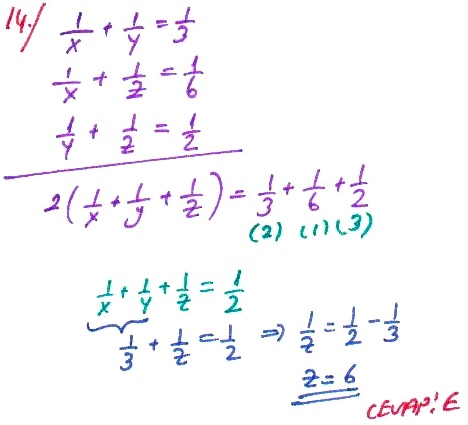 14./ 1/x + 1/y = 1/3
1/x + 1/z = 1/6
1/y + 1/z = 1/2
2(1/x + 1/y + 1/z) = 1/3 + 1/6 + 1/2
(2) (1) (3)
1/x + 1/y + 1/z = 1/2
1/3 + 1/z = 1/2 ⇒ 1/z = 1/2 - 1/3
z = 6
CEVAP: E